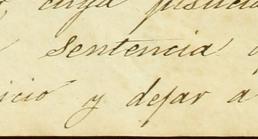 cuya justicia
sentencia
icio y dejar a